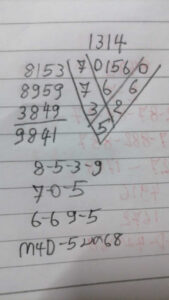 1314
8153 7015600
8959 7 6 6
3849 3 2
9841 5
8-5-3-9
70-5
6-69-5
M4D-52968